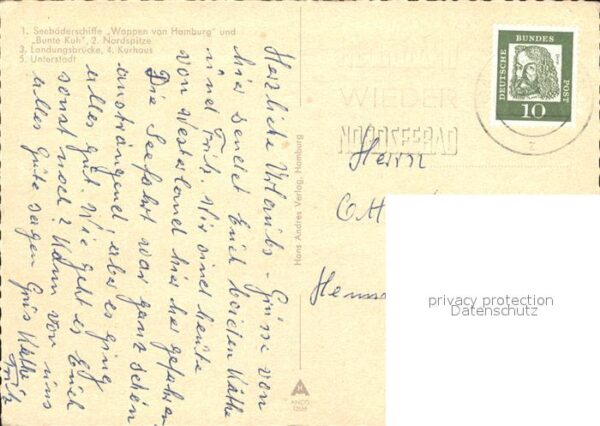 1. Seebäderschiffe „Wappen von Hamburg" und
„Bunte Kuh", 2. Nordspitze
3. Landungsbrücke, 4. Kurhaus
5. Unterstadt
Herzliche Urlaubs-Grüsse von
hier sendet Euch beiden Käthe
und Fritz. Wir sind heute
von Westerland hier her gefahren
Die Seefahrt war ganz schön
anstrengend aber es ging
alles gut. Wie geht es Euch
sonst noch? Kann von uns
alles Gute sagen Gruß Käthe
Fritz
Hans Andres Verlag, Hamburg
ANDO
DEUTSCHE
BUNDES
POST
10
WIEDER
NORDSEEBAD
Herrn
Ott
privacy protection
Datenschutz